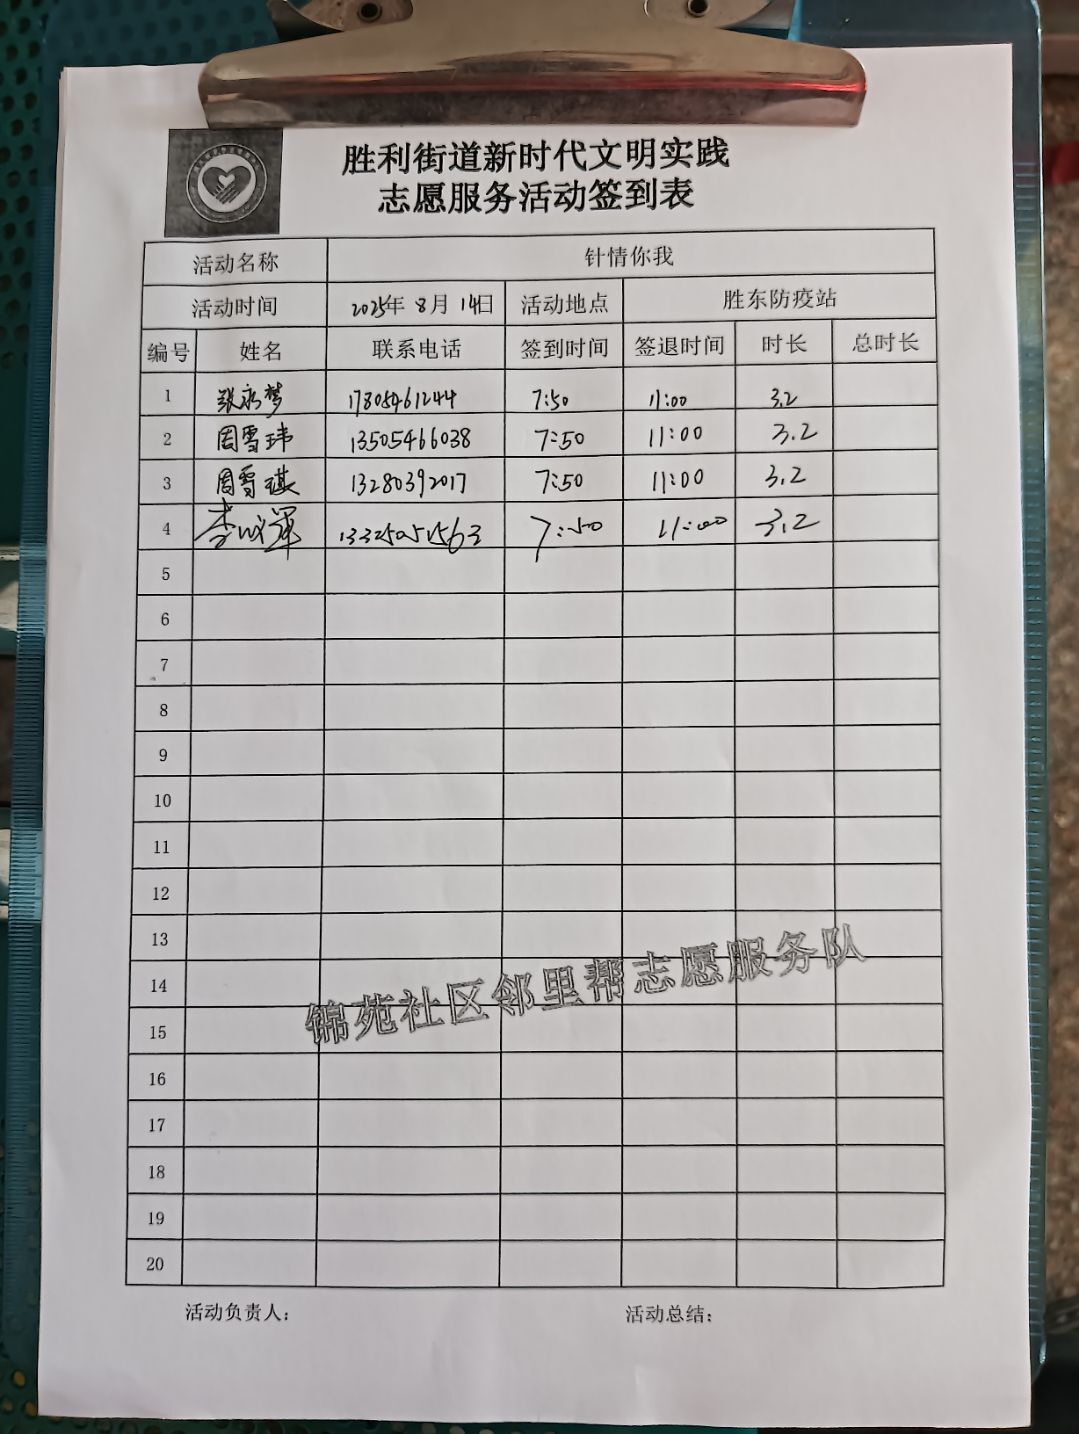 胜利街道新时代文明实践
志愿服务活动签到表
活动名称 针情你我
活动时间 2025年 8月 14日 活动地点 胜东防疫站
编号 姓名 联系电话 签到时间 签退时间 时长 总时长
1 张永梦 17805461244 7:50 11:00 3.2
2 周雪玮 13505466038 7:50 11:00 3.2
3 周雪琪 13280392017 7:50 11:00 3.2
4 李 13325051563 7:50 11:00 3.2
5
6
7
8
9
10
11
12
13
14
15
16
17
18
19
20
锦苑社区邻里帮志愿服务队
活动负责人： 活动总结：